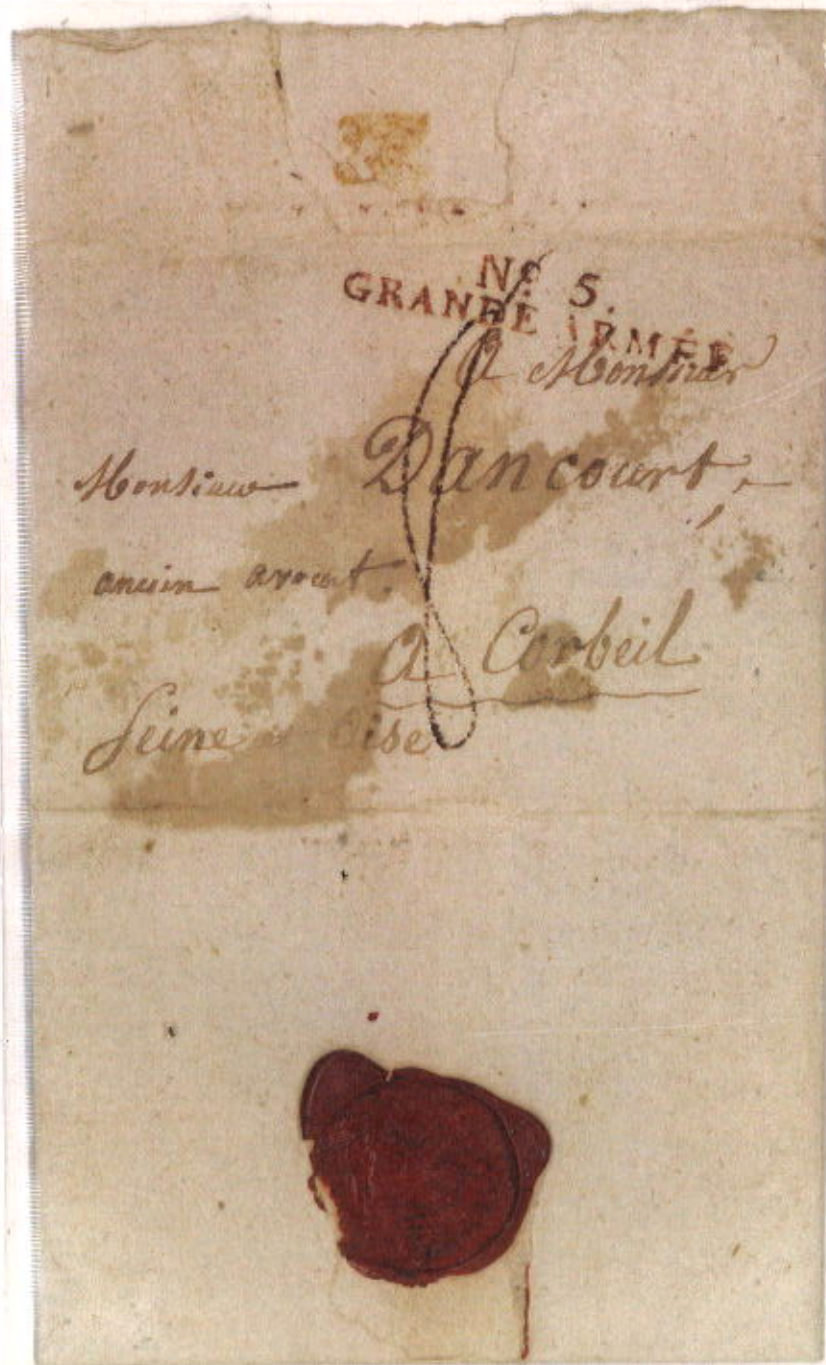 Nº 5.
GRANDE ARMÉE
A Monsieur
Monsieur Dancourt,
ancien avocat.
A Corbeil
Seine et Oise